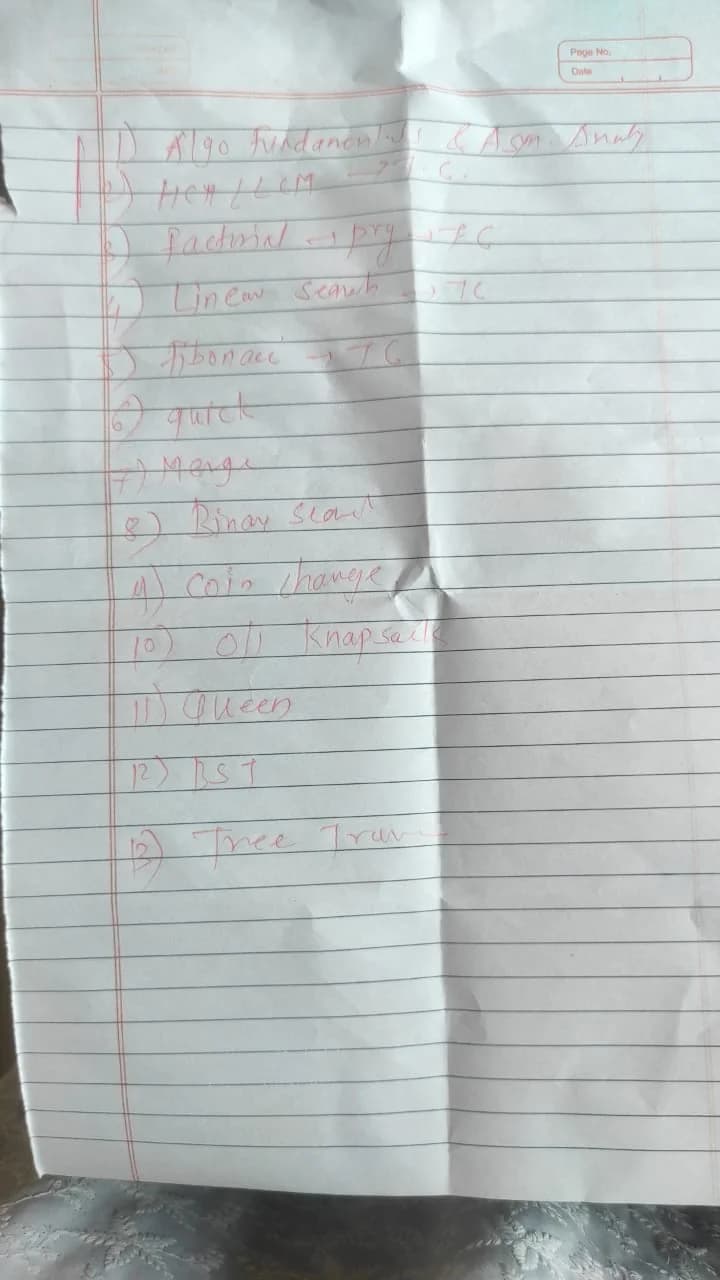 Page No.
Date
1) Algo Fundamentals & Asym. Analy
2) HCF / LCM → T.C.
3) factorial → prg → TC
4) Linear Search → TC
5) fibonacci → TC
6) quick
7) Merge
8) Binary Search
9) Coin change
10) 0/1 Knapsack
11) Queen
12) BST
13) Tree Trav